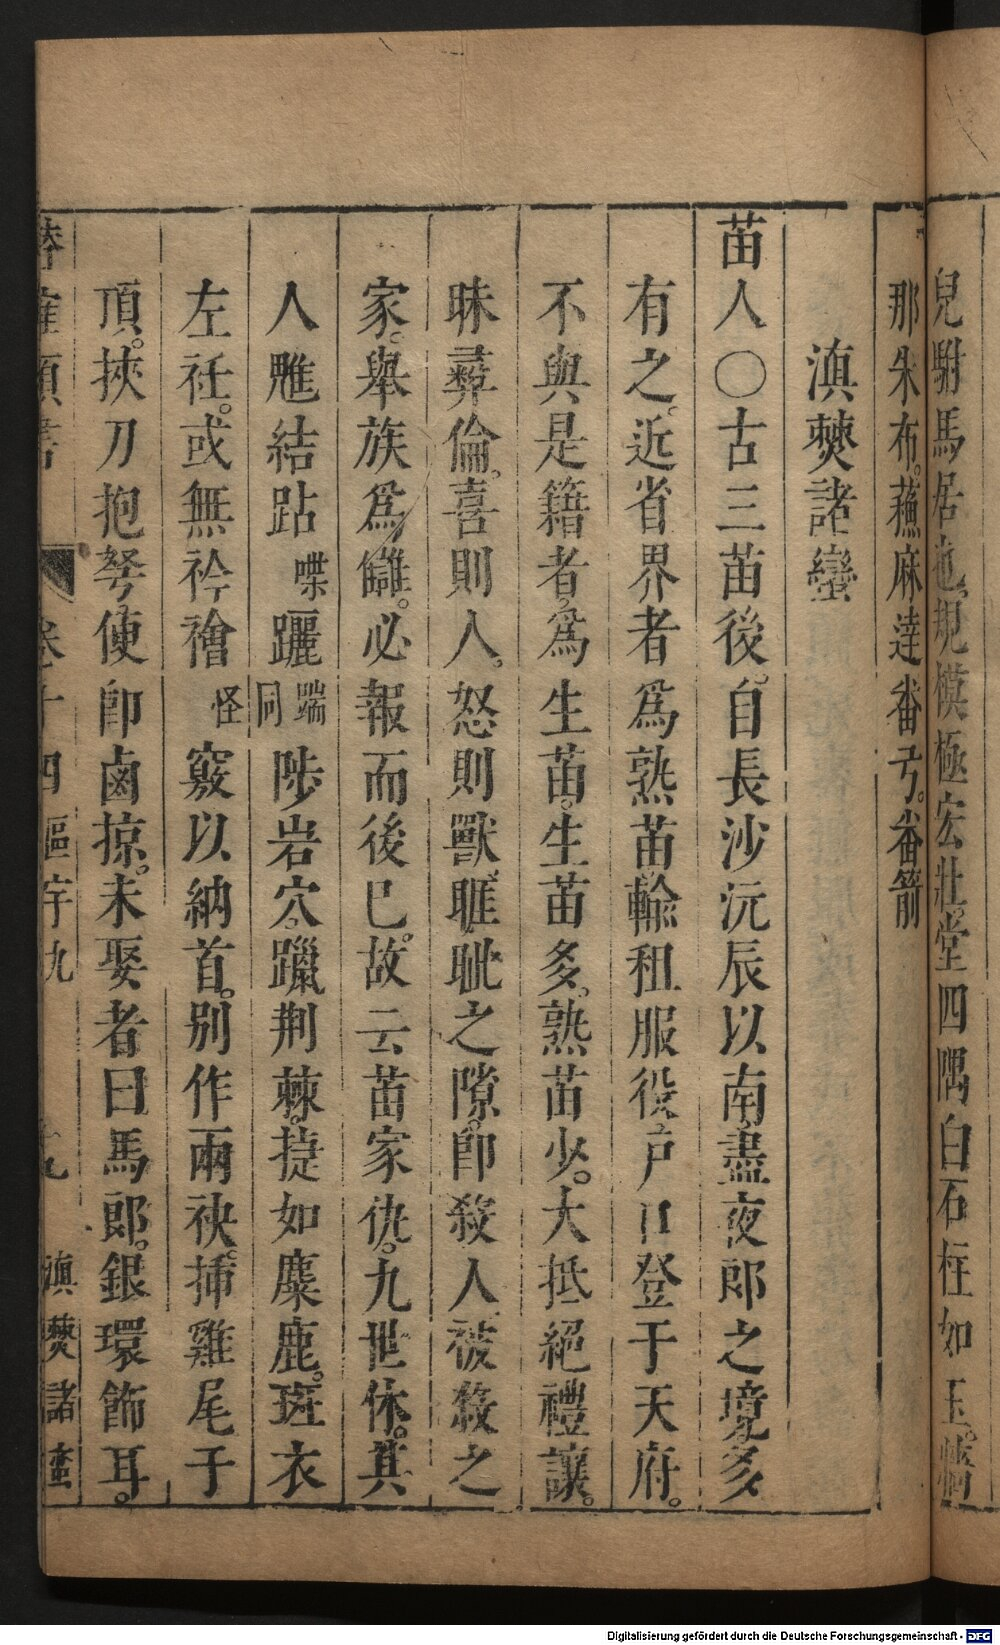 兒駙馬居也。規模極宏壯。堂四隅白石柱如玉。
那朱布。蕪麻達番弓。番箭
滇僰諸蠻
苗人〇古三苗後。自長沙沅辰以南盡夜郎之境多
有之。近省界者為熟苗輸租服役戶口登于天府。
不與是籍者。為生苗。生苗多。熟苗少。大抵絕禮讓。
昧彝倫。喜則人。怒則獸。睚眦之隙。卽殺人。被殺之
家。舉族為讎。必報而後巳。故云苗家仇。九世休。其
人雕結跕喋躧踹同陟岩穴。躐荆棘。捷如麋鹿。斑衣
左衽。或無衿襘怪竅以納首。別作兩袂。揷雞尾于
頂。挾刀抱弩使卽鹵掠。未娶者曰馬郎。銀環飾耳。
潛確類書 卷十四 區宇九 十九 滇僰諸蠻
Digitalisierung gefördert durch die Deutsche Forschungsgemeinschaft - DFG